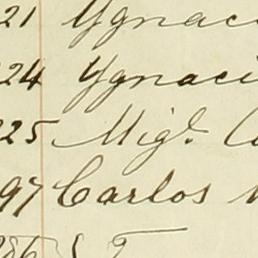 21 Ygnaci
24 Ygnaci
225 Migl. C
97 Carlos
286